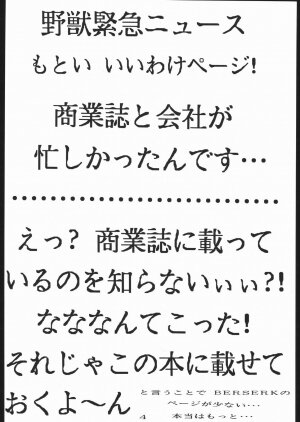 野獣緊急ニュース
もとい いいわけページ!
商業誌と会社が
忙しかったんです…
えっ? 商業誌に載って
いるのを知らないぃぃ?!
なななんてこった!
それじゃこの本に載せて
おくよ〜ん
と言うことで BERSERKの
ページが少ない…
本当はもっと…
4